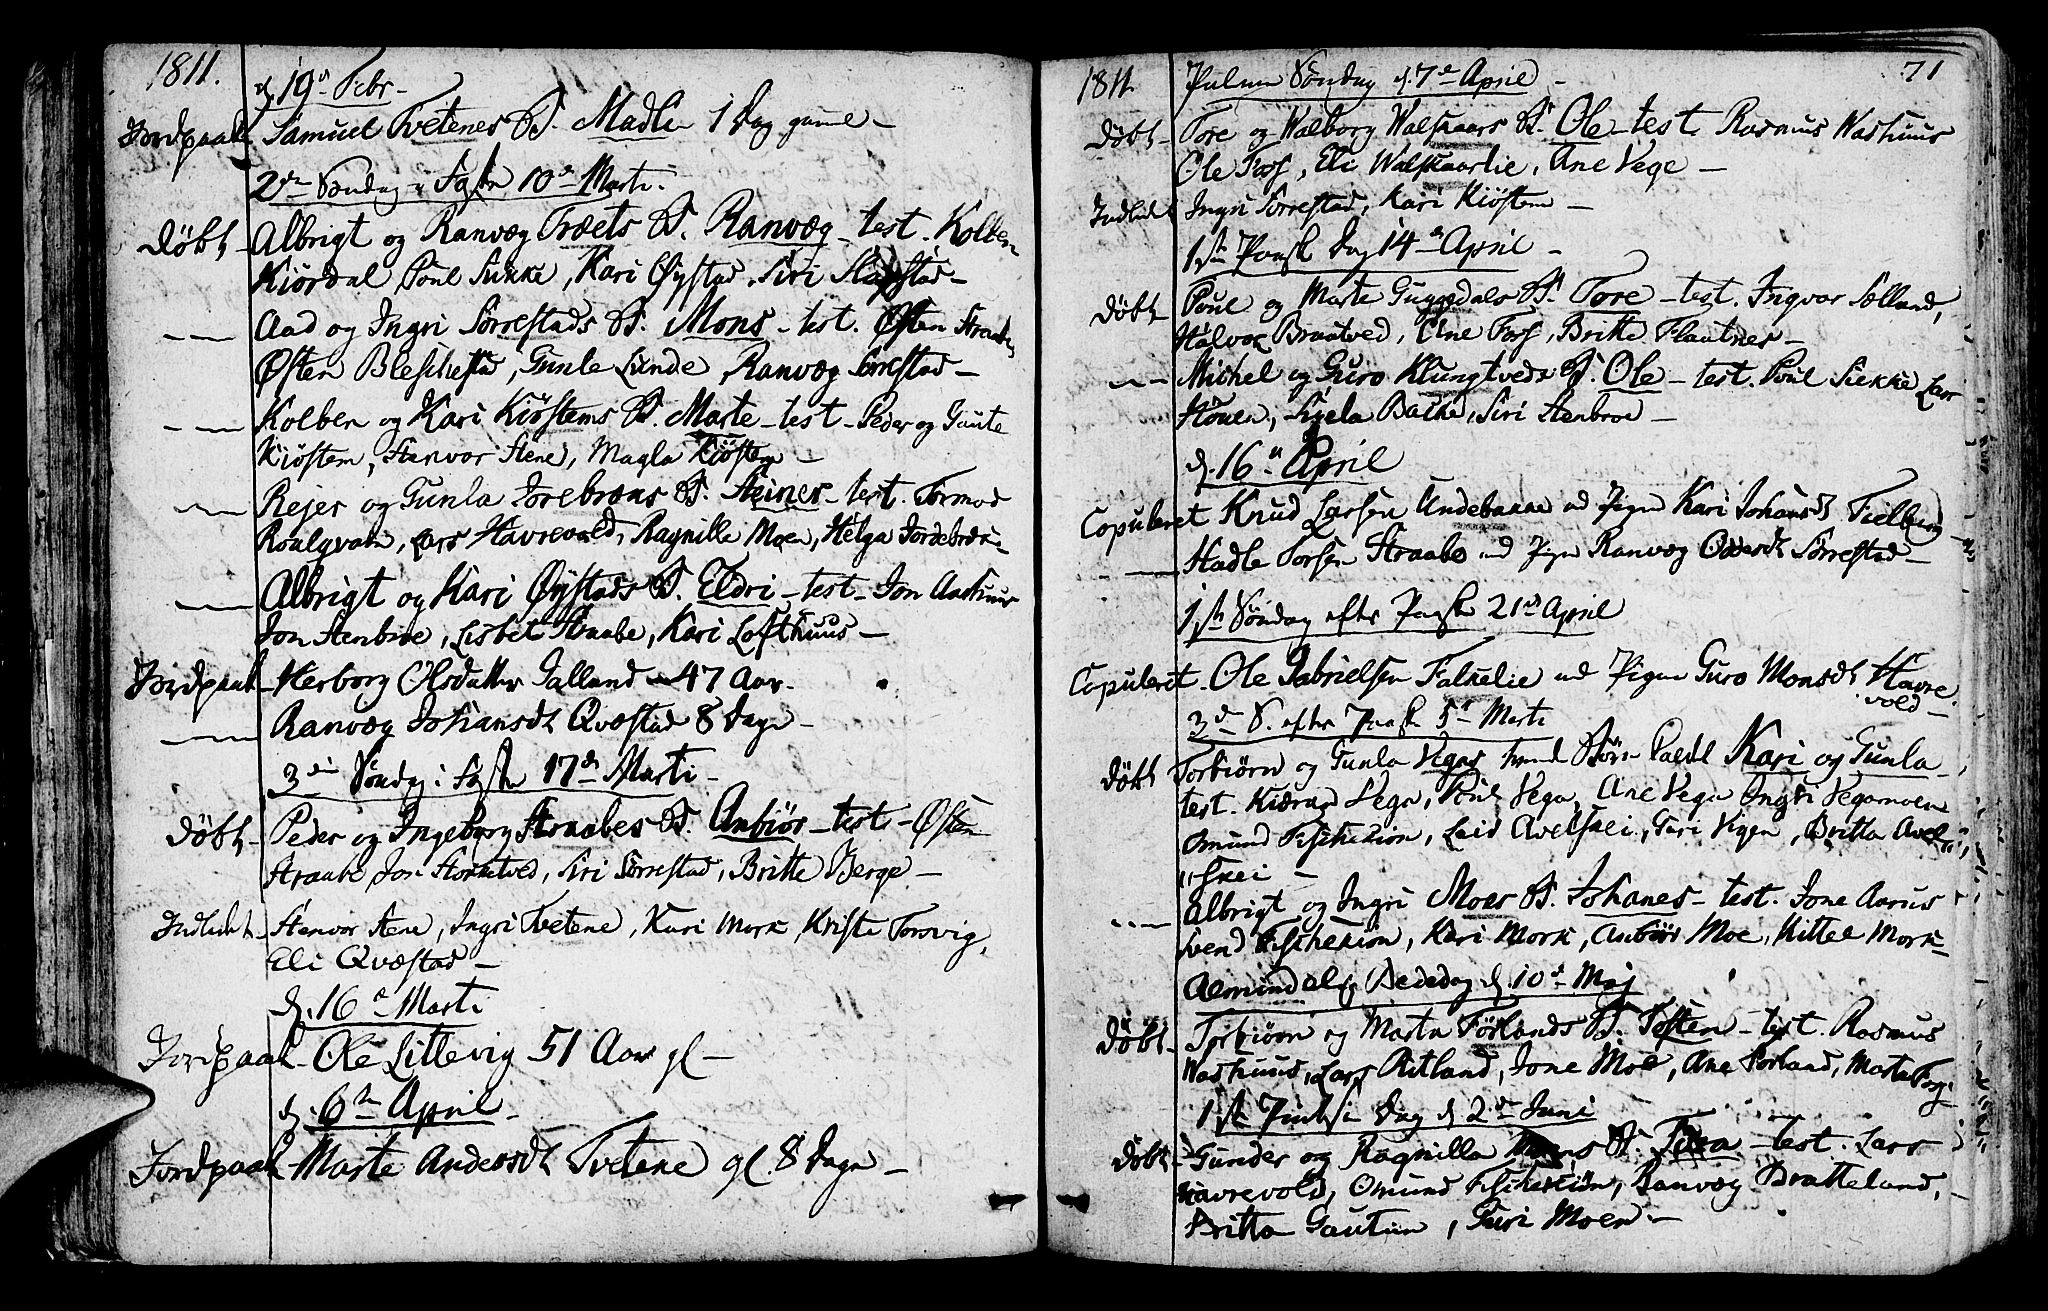 1811.
d. 19de Febr.
Jordpaak. Samuel Tvetenes B. Madle 1 Dag gamel
2den Søndag i Fasten 10de Marti.
Døbt Albrigt og Ranvæg Træets B. Ranvæg test. Kolben
Kiørdal Poul Sukke, Kari Øystad, Siri
Aad og Ingri Sørrestads B. Mons test. Østen Straabe
Østen Bleskestad, Gunle Lunde, Ranvæg Sørrestad
Kolben og Kari Kiøstems B. Marte test Peder og Gaute
Kiøstem, Stenvor Stene, Magla Kiøstem
Rejer og Gunla Jorebrøns B. Steiner test. Tormod
Roalqvam, Lars Havrevold, Ragnille Moen, Helga Jordebræk
Albrigt og Kari Øystads B. Eldri test. Jon Aarhuus
Jon Stenbroe, Lisbet Straabe, Kari Lofthuus
Jordpaak Herborg Olsdatter Jalland 47 Aar.
Ranvæg Johansdt Qvæstad 8 Dage
3die Søndag i Fasten 17de Marti
Døbt Peder og Ingeborg Straabes B. Anbiør test. Østen
Straabe Jon Storketved, Siri Sørrestad, Britte Berge
Indledt Stenvor Stene, Ingri Tvetene, Kari Mork, Kriste Torsvig,
Eli Qvæstad
d. 16de Marti
Jordpaak Ole Littevig 51 Aar gl
d. 6te April
Jordpaak Marte Andersdt Tvetene gl. 8 Dage
1811. 71
Palme Søndag d. 7de April
Døbt Tore og Walborg Walskaars B. Ole test. Rasmus Washuus
Ole Foss, Eli Walskaarlie, Ane Vege
Indledt Ingri Sørrestad, Kari Kiøstem
1ste Paaske Dag 14de April
Døbt Poul og Marte Guggedals B. Tore test. Ingvar Sælland,
Halvor Braatved, Ane Foss, Britte Flautnes
Michel og Guro Klungtveds B. Ole test. Poul Sukke, Lars
Høuen, Sigela Bakke, Siri Stenbroe
d. 16de April
Copuleret Knud Larsen Undebakke med Pigen Kari Johansdt Fielberg
Hadle Torsen Straabe med Pigen Ranvæg Oddesdt Sørrestad
1ste Søndag efter Paaske 21de April
Copuleret Ole Gabrielsen Falkelie med Pigen Guro Monsdt Havre
vold
3de S. efter Paaske 5te Marti
Døbt Torbiørn og Gunla Veges tvende Børn kaldt Kari og Gunla
test. Vega, Poul Vega, Ane Vega Ingri Vegamoen
Omund Fischekiøn, Leid Avelskei, Guri Vigen, Britta Avel
skei
Albrigt og Ingri Moes B. Johanes test. Jone Aarhus
Svend Fischekiøn, Kari Mork, Anbiør Moe, Kittel Mork
Almindelig Bededag d. 10de Maj
Døbt Torbiørn og Marta Førlands B. Tosten test. Rasmus
Washuus, Lars Ritland, Jone Moe, Ane Førland, Marta
1ste Pintse Dag d. 2de Juni
Døbt Gunder og Ragnilla B. test. Lars
Havrevold, Omund Fischekiøn, Ranvæg Bratteland,
Britta Gautun, Guri Moen